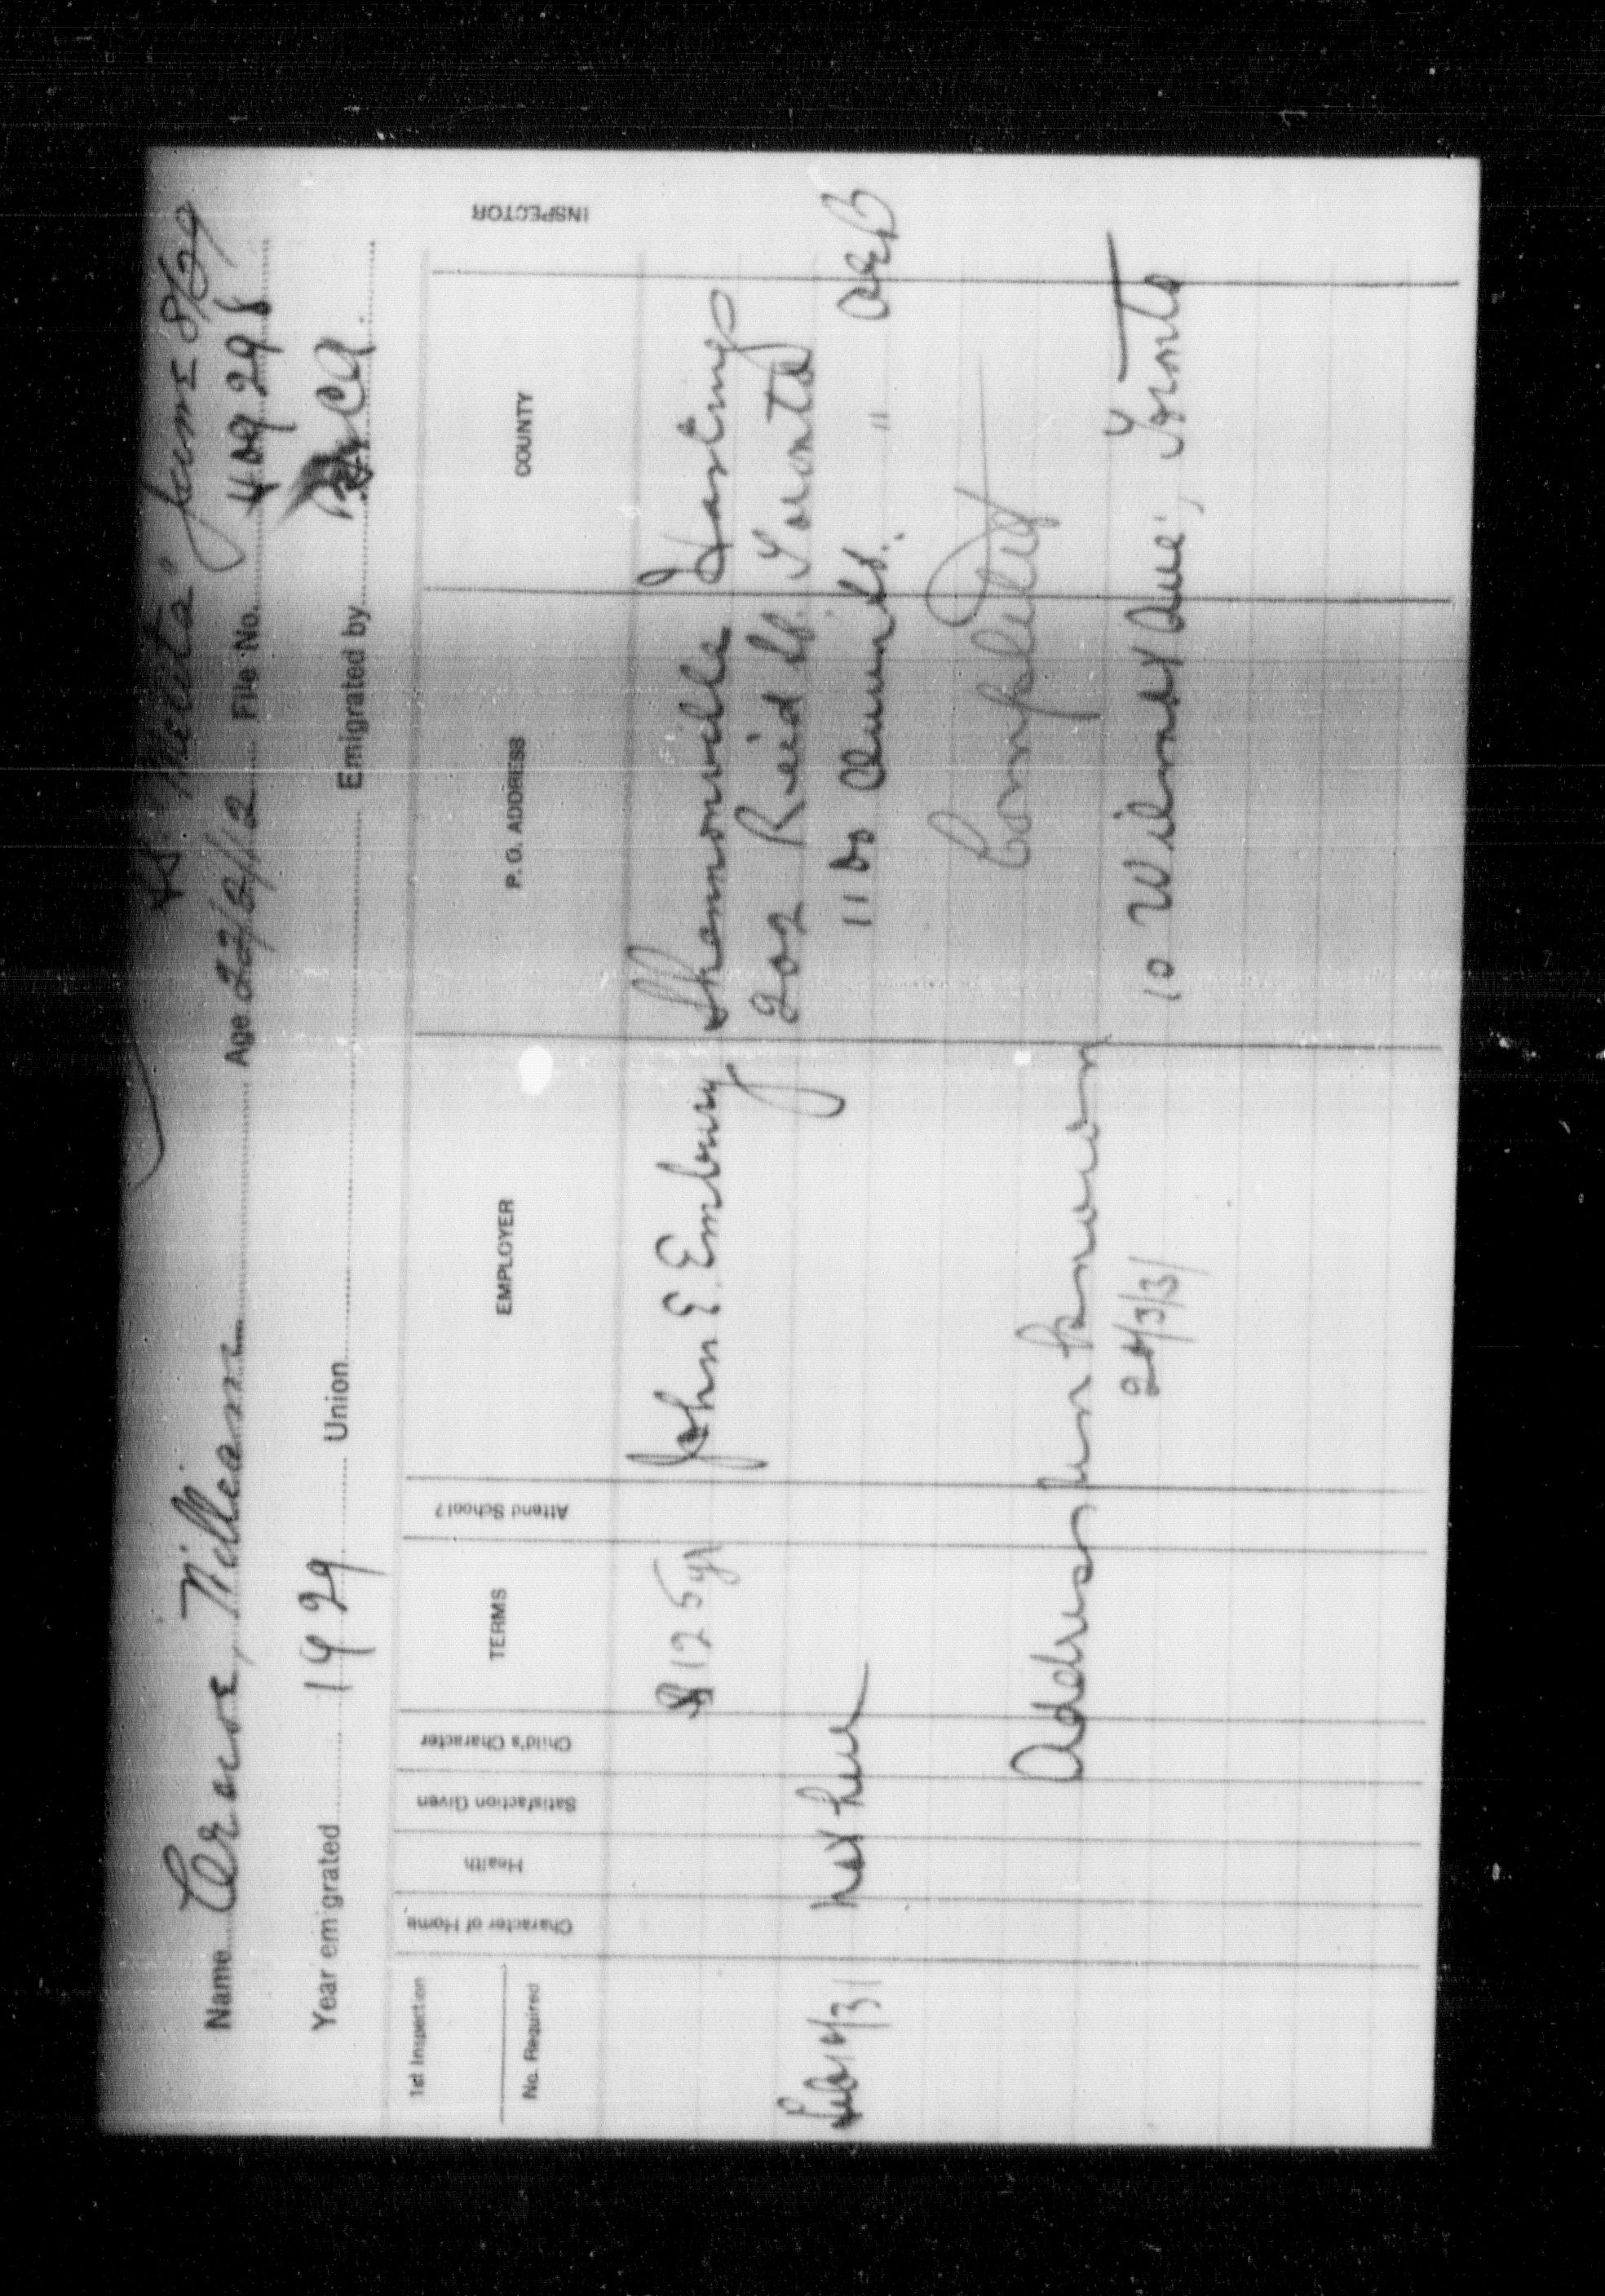 SS. "Melita" June 8/29
Name Crowe, William Age 22/2/12 File No. 409298
Year emigrated 1929 Union Emigrated by BICA
1st Inspection
No. Required
Character of Home
Health
Satisfaction Given
Child's Character
TERMS
Attend School?
EMPLOYER
P.O. ADDRESS
COUNTY
INSPECTOR
$125 yr John E. Embury Shannonville Hastings
202 Reid St. Toronto
Feb 14/31 not here St. "
Completed
Address unknown
24/3/31 10 Ave., Toronto